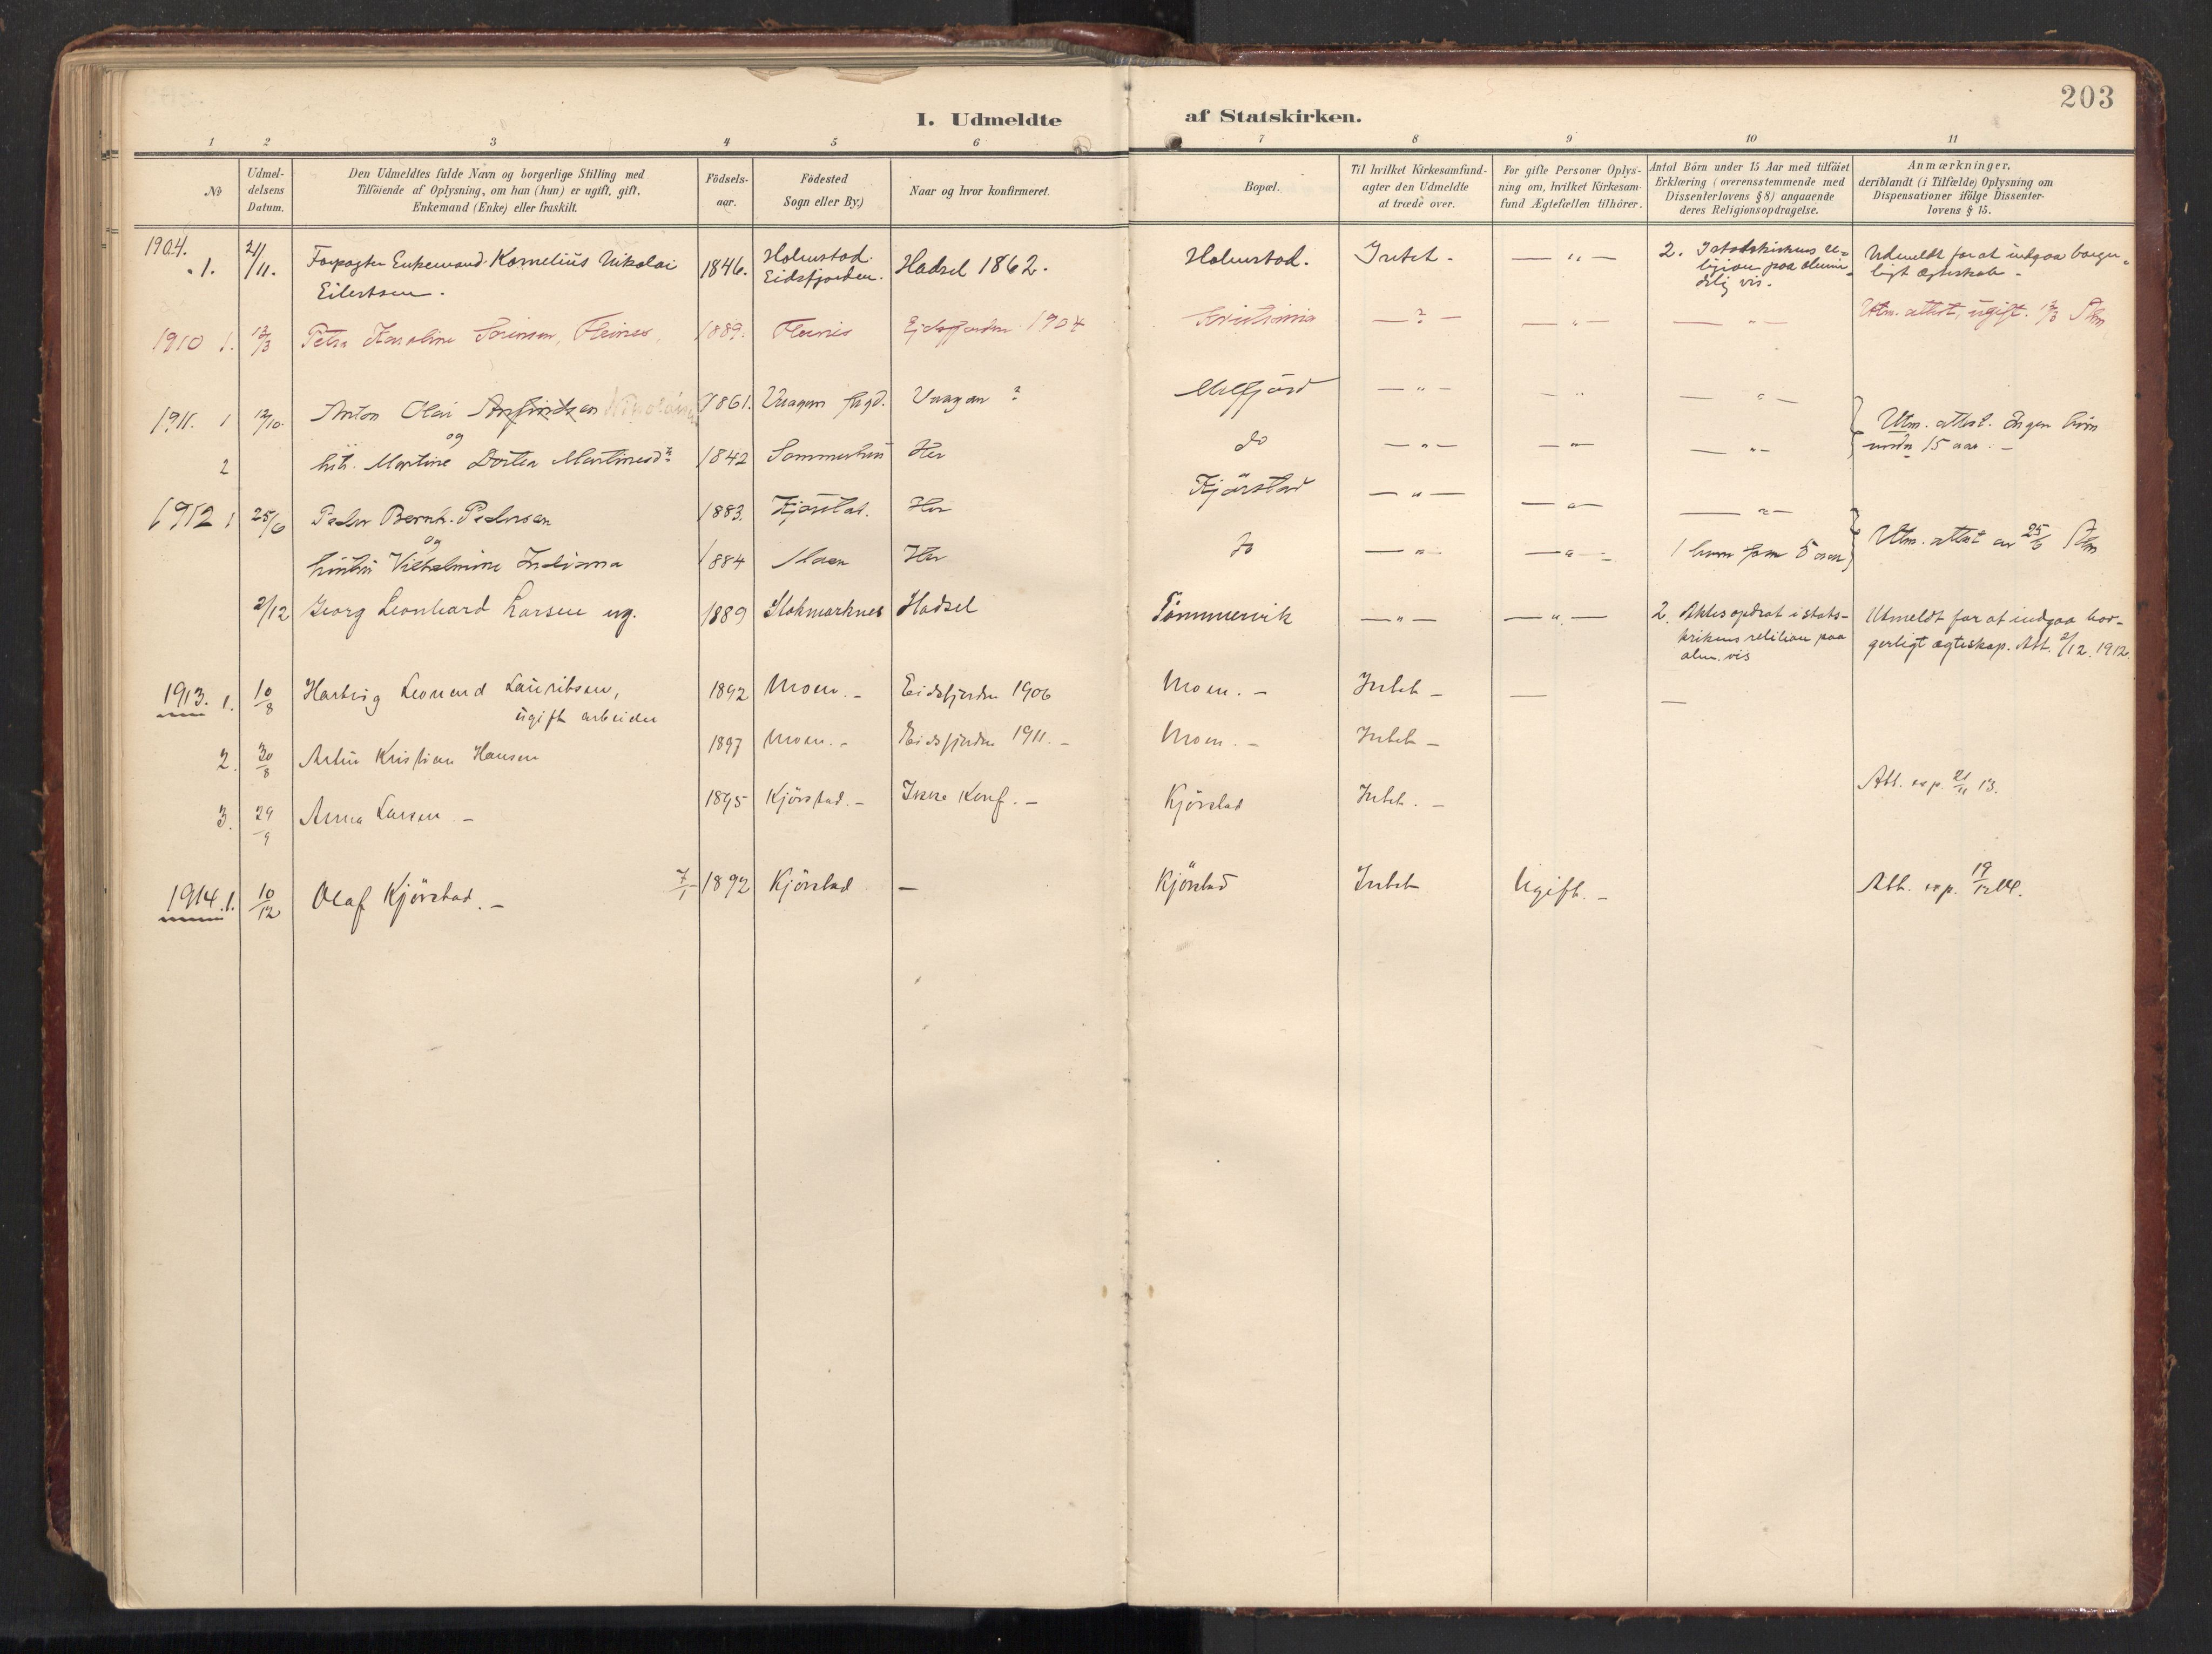 203
I. Udmeldte af Statskirken.
1 2 3 4 5 6 7 8 9 10 11
No
Udmel-
delsens
Datum.
Den Udmeldtes fulde Navn og borgerlige Stilling med
Tilföiende af Oplysning, om han (hun) er ugift, gift.
Enkemand (Enke) eller fraskilt.
Födsels-
aar.
Födested
Sogn eller By.)
Naar og hvor konfirmeret.
Bopæl.
Til hvilket Kirkesamfund-
agter den Udmeldte
at træde over.
For gifte Personer Oplys-
ning om, hvilket Kirkesam-
fund Ægtefællen tilhörer.
Antal Börn under 15 Aar med tilföiet
Erklæring (overensstemmende med
Dissenterlovens § 8) angaaende
deres Religionsopdragelse.
Anmærkninger,
deriblandt (i Tilfælde) Oplysning om
Dispensationer ifölge Dissenter-
lovens § 15.
1904.
1. 2/11. Forpagter Enkemand Kornelius Nikolai 1846. Holmstad. Hadsel 1862. Holmstad. Intet. — " — 2. I statskirkens re- Udmeldt for at indgaa borger-
Eilertsen. Eidsfjorden. ligion paa almin- ligt ægteskab -
delig vis.
1910 1. 12/3 Petra Karoline Sörensen, Fleines, 1889. Fleines Eidsfjorden 1904 Kristiania — ? — — " — — " — Utm. attest, ugift. 12/3
1911. 1 12/10 Anton Olai Arfindsen 1861. Vaagan Vaagan ? Melfjord — " — — " — — " — Utm. attest. Ingen börn
og under 15 aar. -
2 Martine Dortea 1842 Her do — " — — " — — " —
1912 1 25/6 Peder Bernh. Pedersen 1883. Kjörstad. Her Kjörstad — " — — " — — " — Utm. attest av 25/6
og
hustru Vilhelmine Indiana 1884 Moen Her do — " — — " — 1 barn 5 aar
2/12 Georg Leonhard Larsen ug. 1889 Stokmarknes Hadsel Tömmervik — " — — " — 2. Aktes opdrat i stats- Utmeldt for at indgaa bor-
kirkens relilion paa gerligt ægteskap. Att. 2/12. 1912.
alm. vis
1913. 1. 10/8 Hartvig Leonard Lauritsen, 1892 Moen. - Eidsfjorden 1906 Moen. - Intet - — —
ugift arbeider
2. 30/8 Artur Kristian Hansen 1897 Moen. - Eidsfjorden 1911. - Moen. - Intet -
3. 29/9 Anna Larsen. - 1895 Kjörstad. - Ikke Konf. - Kjörstad Intet. - Att. exp. 21/11 13.
1914. 1. 10/12 Olaf Kjörstad. - 7/1 1892 Kjörstad — Kjörstad Intet Ugift. - Att. exp. 19/12 14.